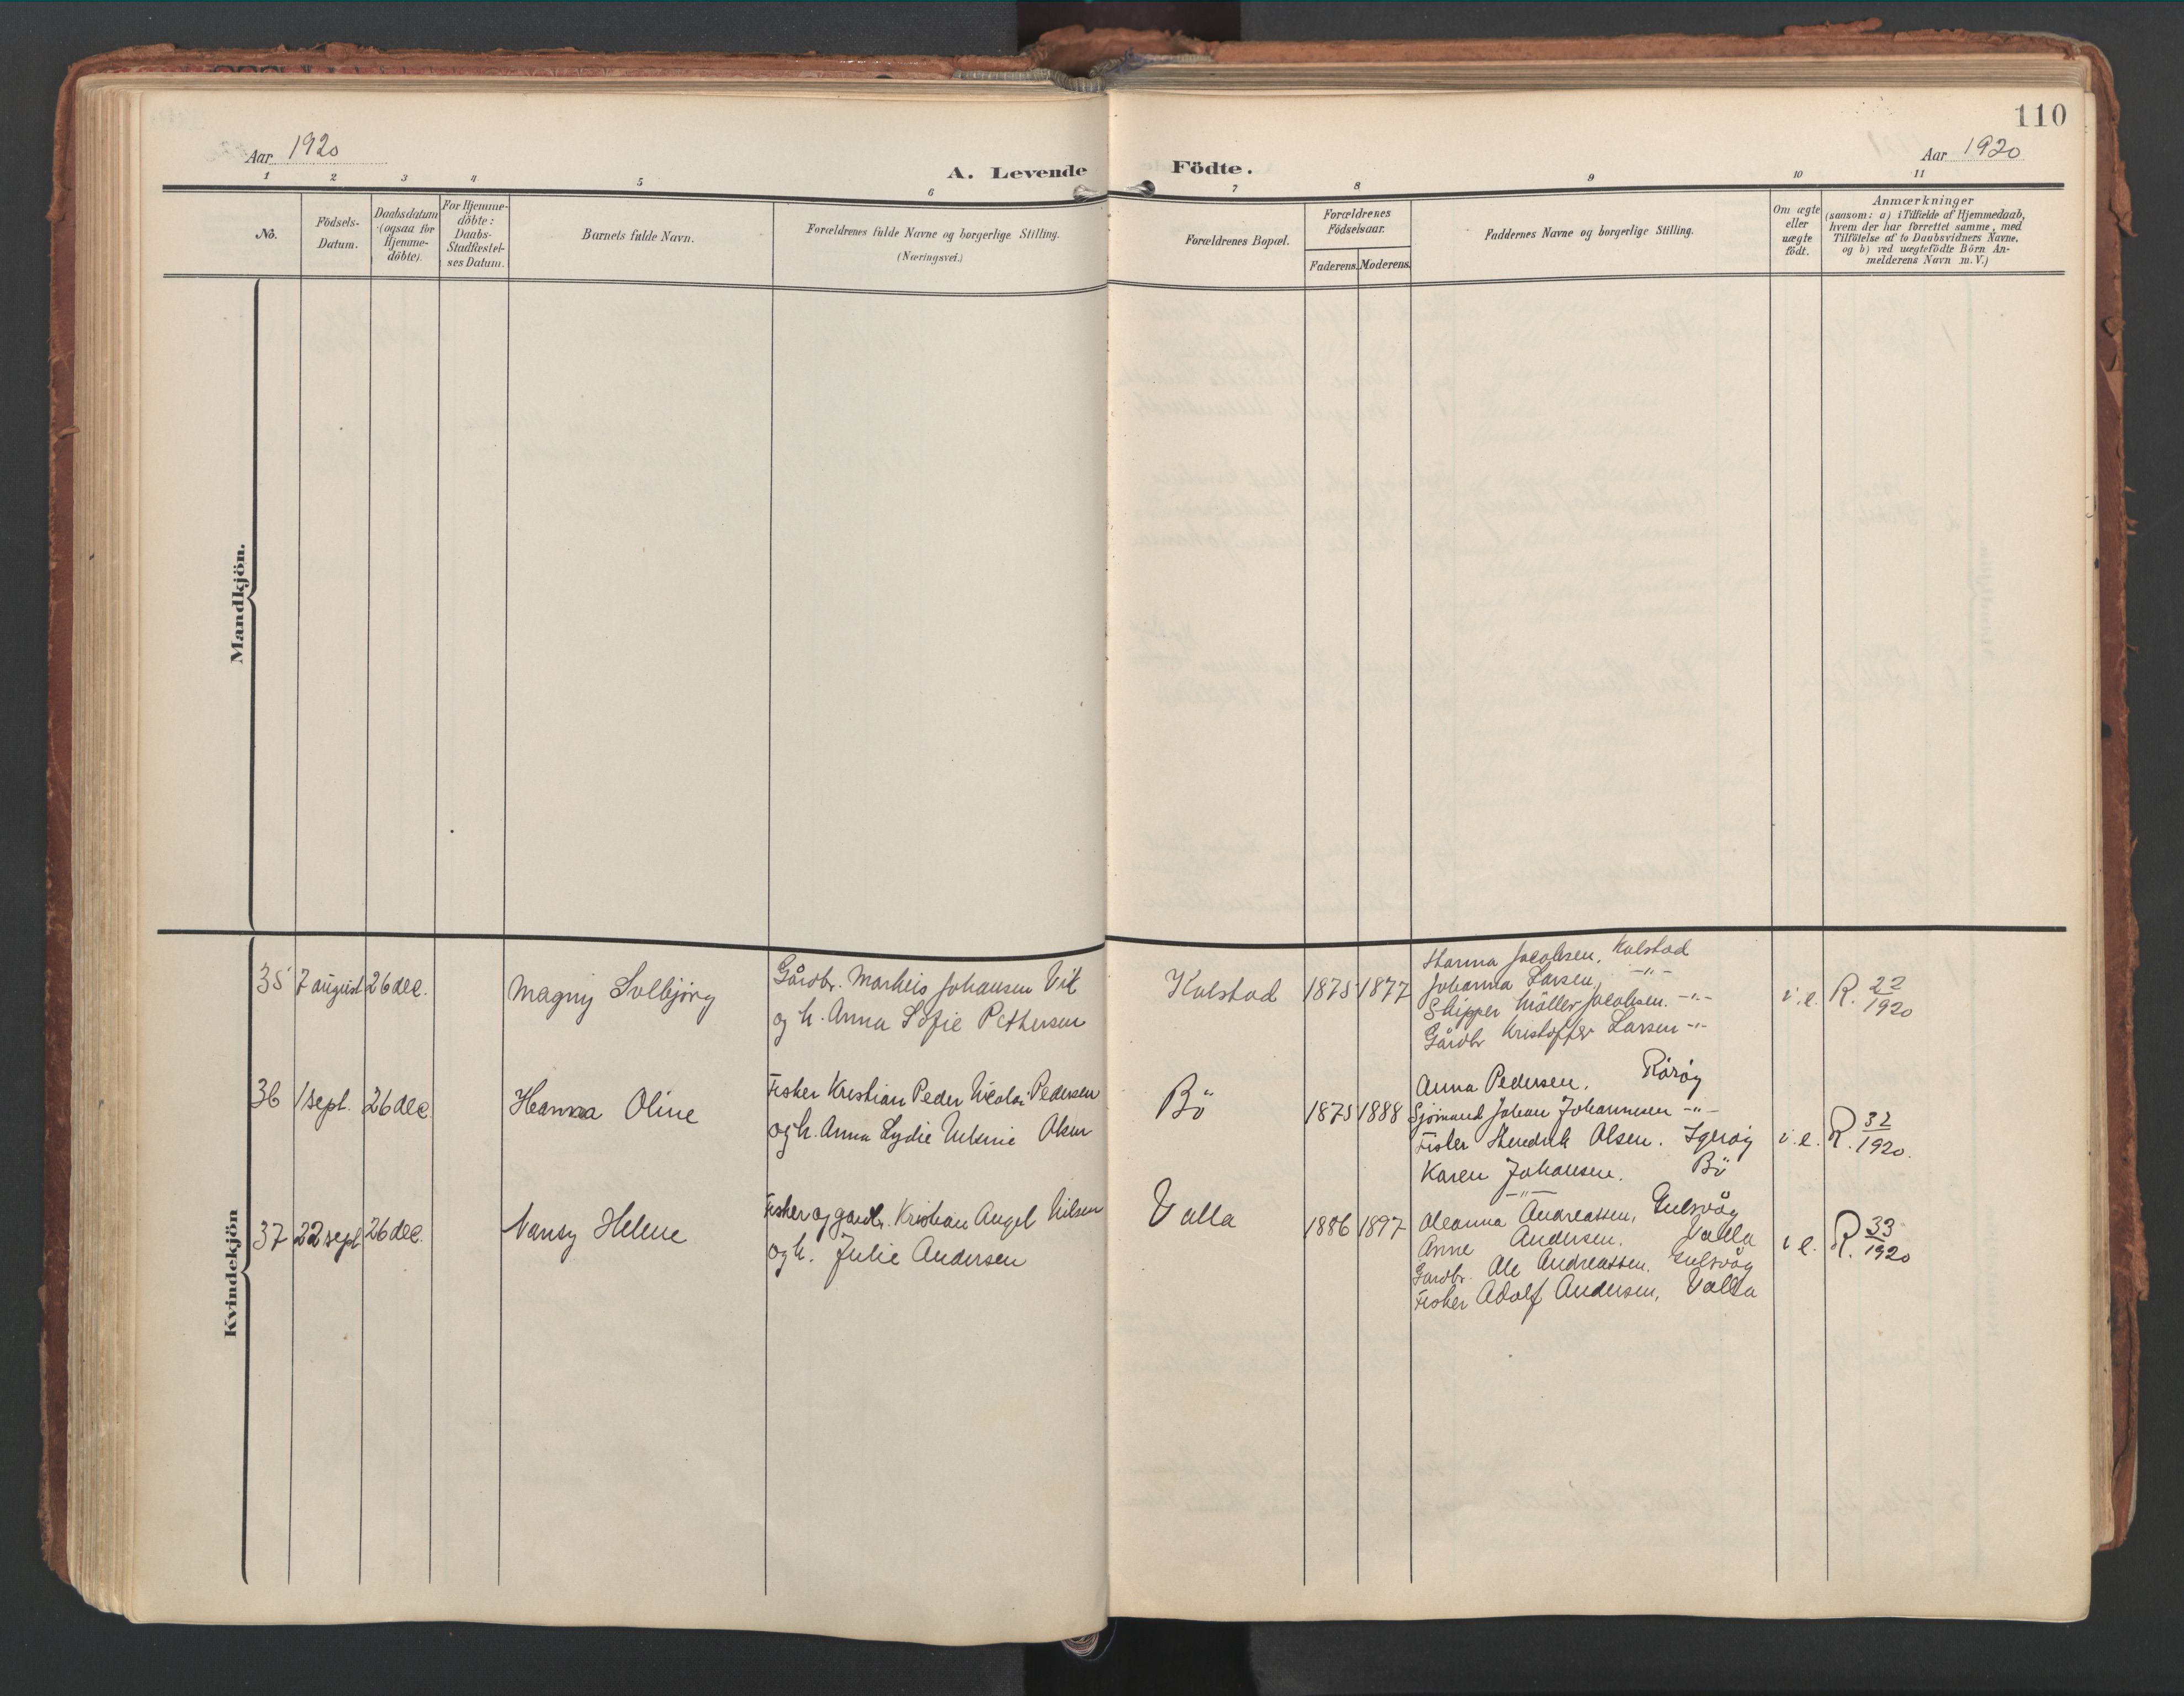 110
Aar 1920
Aar 1920
A. Levende Födte.
1 2 3 4 5 6 7 8 9 10 11
No.
Födsels-
Datum.
Daabsdatum
(ogsaa for
Hjemme-
döbte).
For Hjemme-
döbte:
Daabs-
Stadfæstel-
ses Datum.
Barnets fulde Navn.
Forældrenes fulde Navne og borgerlige Stilling.
(Næringsvei.)
Forældrenes Bopæl.
Forældrenes
Födselsaar.
Faderens. Moderens.
Faddernes Navne og borgerlige Stilling.
Om ægte
eller
uægte
födt.
Anmærkninger
(saasom: a) i Tilfælde af Hjemmedaab,
hvem der har forrettet samme, med
Tilföielse af to Daabsvidners Navne,
og b) ved uægtefödte Börn An-
melderens Navn m. V.)
Mandkjön.
Kvindekjön
35 7 august 26 dec. Magny Solbjörg
Gårdbr. Markus Johansen Vik
og h. Anna Sofie Pettersen
Kulstad 1875 1877
Hanna Jacobsen, Kulstad
Johanna Larsen, -"-
Skipper Möller Jacobsen. -"-
Gårdbr Kristoffer Larsen -"-
i. e. R. 22/1920
36 1 sept. 26 dec Hanna Oline
Fisker Kristian Peder Nicolai Pedersen
og h. Anna Lydie Olsen
Bö 1875 1888
Anna Pedersen, Rörög
Sjömand Johan Johannesen -"-
Fisker Hendrik Olsen. Igeröy
Karen Johansen. Bö
-"-
i. e. R. 32/1920.
37 22 sept 26 dec. Nansy Helene
Fisker og gardb. Kristian Angel Nilsen
og h. Julie Andersen
Valla 1886 1897
Oleanna Andreassen, Gulsvåg
Anne Andersen. Valla
Gardbr. Ole Andreassen. Gulsvåg
Fisker Adolf Andersen, Valla
i e. R. 33/1920